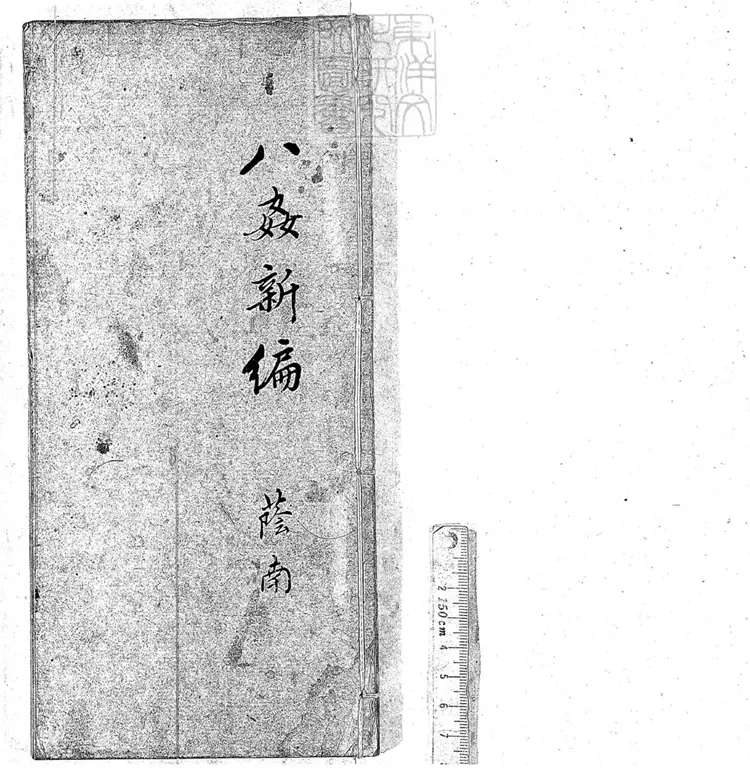 八姦新編
蔭南
東洋文
化研究
所圖書
2 150cm 4 5 6 7